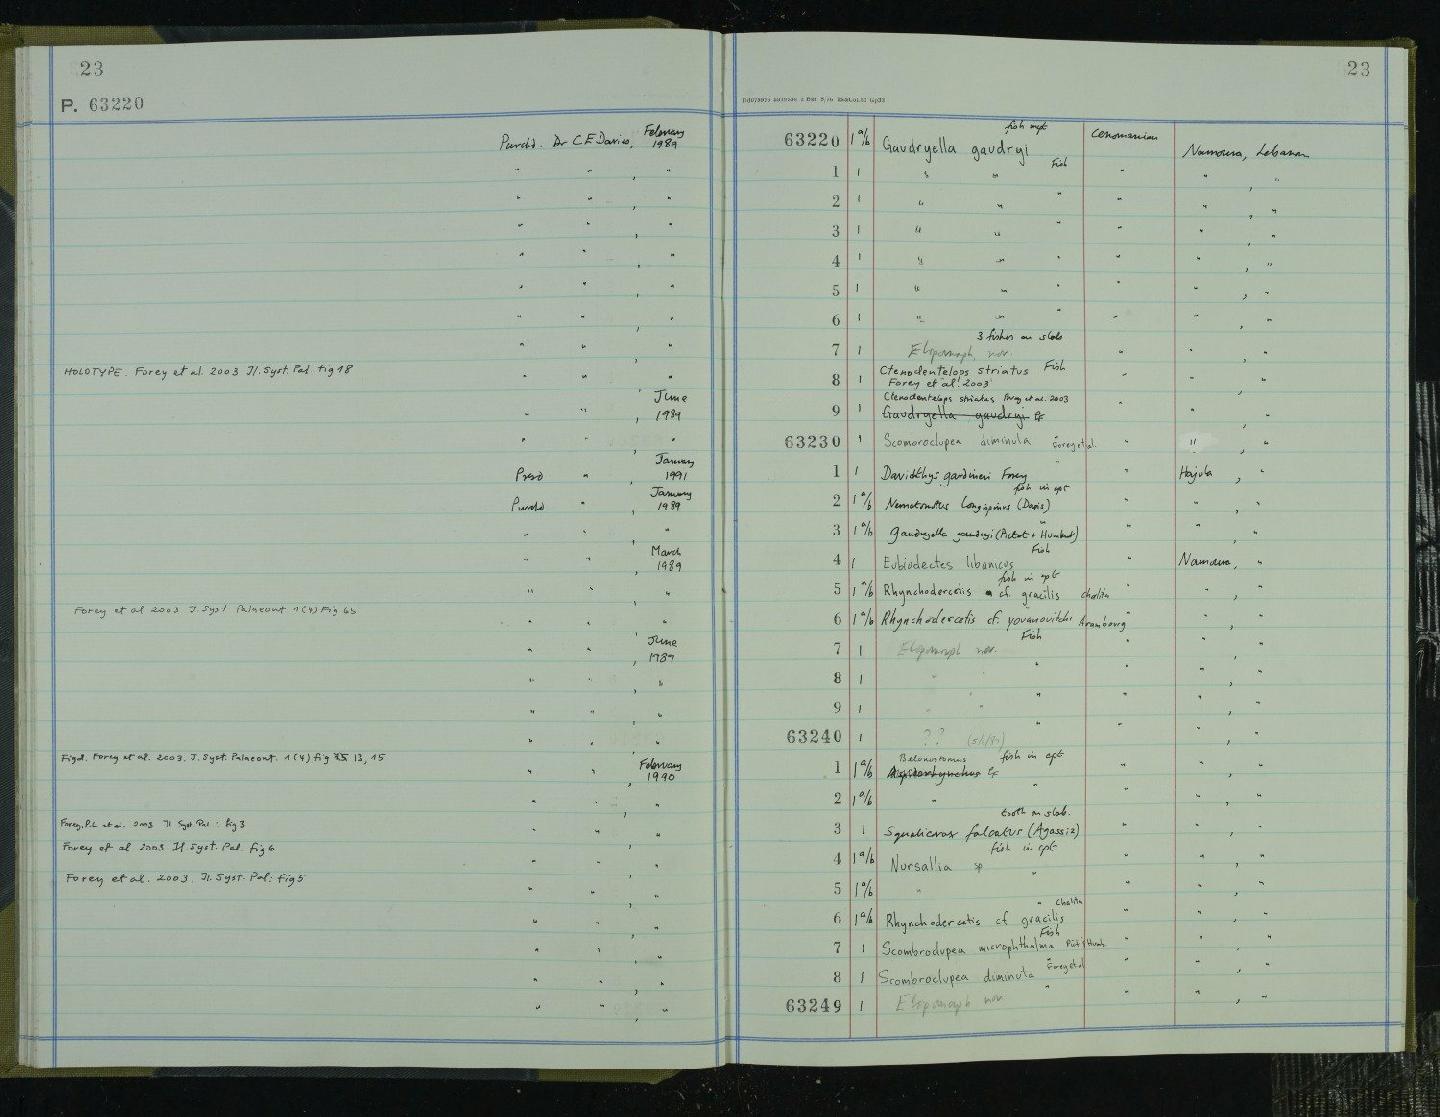 23
P. 63220
Purchd. Dr C.E Davies, February 1989
" " , "
" " , "
" " , "
" " , "
" " , "
" " , "
" " , "
HOLOTYPE. Forey et al. 2003 Jl. Syst. Pal. fig 18 " " , "
" " , June 1989
" " , "
Presd " , January 1991
Purchd " , January 1989
" " , "
" " , March 1989
" " , "
Forey et al 2003 J. Syst Palaeont 1(4) Fig 63 " " , "
" " , June 1989
" " , "
" " , "
" " , "
Figd. Forey et al. 2003. J. Syst. Palaeont. 1(4) fig 13, 15 " " , February 1990
" " , "
Forey, P.L et al. 2003 Jl Syst Pal : fig 3 " " , "
Forey et al 2003 Jl Syst. Pal. fig 6 " " , "
Forey et al. 2003. Jl. Syst. Pal: fig 5 " " , "
" " , "
" " , "
" " , "
" " , "
23
63220 1 a/b Gaudryella gaudryi fish in cpt Cenomanian Namoura, Lebanon
1 1 " " Fish " " , "
2 1 " " " " " , "
3 1 " " " " " , "
4 1 " " " " " , "
5 1 " " " " " , "
6 1 " " " " " , "
7 1 Elopomorph nov. 3 fishes on slab " " , "
8 1 Ctenodentelops striatus Fish " " , "
Forey et al. 2003
Ctenodentelops striatus Forey et al. 2003
9 1 Gaudryella gaudryi " " , "
63230 1 Scombroclupea diminula Forey et al. " " , "
1 1 Davidthys gardineri Forey " " Hajula , "
2 1 a/b Nematonotus longispinus (Davis) fish in cpt " " , "
3 1 a/b Gaudryella gaudryi (Pictet + Humbert) " " " , "
4 1 Eubiodectes libanicus Fish " Namoura, "
5 1 a/b Rhynchodercetis cf. gracilis Chalifa fish in cpt " " , "
6 1 a/b Rhynchodercetis cf. yovanovitchi Arambourg " " " , "
7 1 Elopomorph nov. Fish " " , "
8 1 " " " " " , "
9 1 " " " " " , "
63240 1 ?? " " " , "
1 1 a/b Belonostomus fish in cpt " " , "
Aspidorhynchus
2 1 a/b " " " " , "
3 1 Squalicorax falcatus (Agassiz) tooth on slab. " " , "
4 1 a/b Nursallia sp fish in cpt " " , "
5 1 a/b " " " " , "
6 1 a/b Rhynchodercetis cf gracilis " Chalifa " " , "
7 1 Scombroclupea microphthalma Pict & Humb. Fish " " , "
8 1 Scombroclupea diminula " Forey et al " " , "
63249 1 Elopomorph nov " " " , "